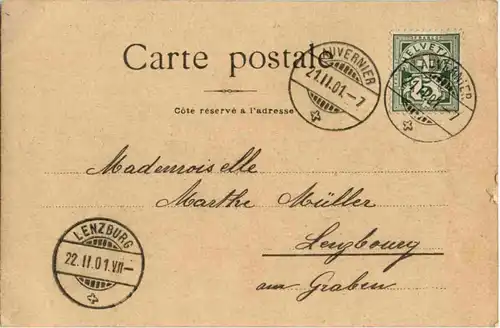 Carte postale
AUVERNIER
21.II.01.–7
HELVETIA
FRANCO
AUVERNIER
Côte réservé à l'adresse
Mademoiselle
Marthe Müller
Lenzbourg
am Graben
LENZBURG
22.II.01.VII–